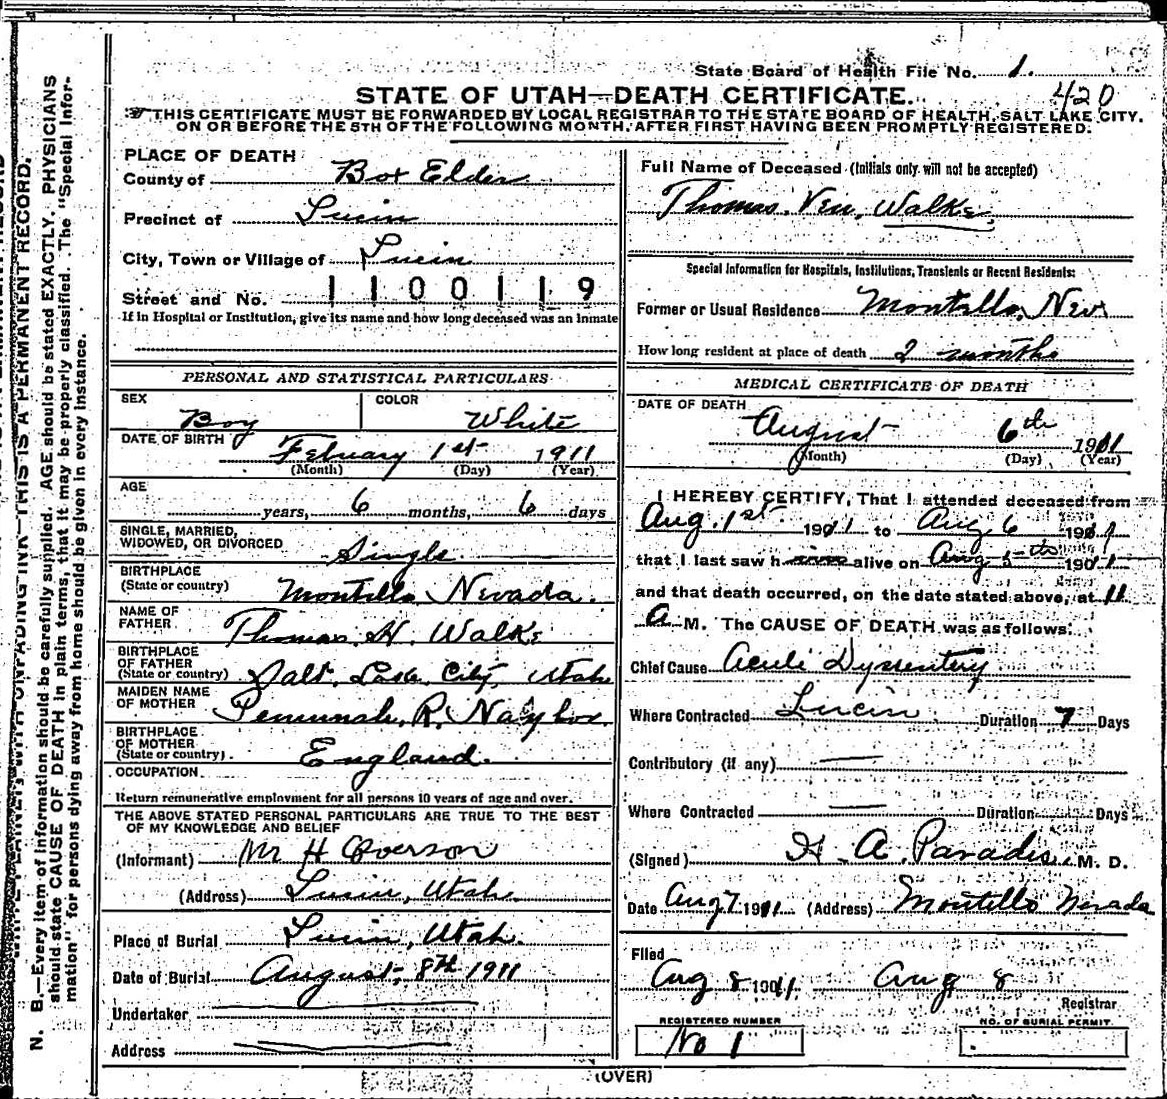 State Board of Health File No. 1.
420
STATE OF UTAH—DEATH CERTIFICATE.
THIS CERTIFICATE MUST BE FORWARDED BY LOCAL REGISTRAR TO THE STATE BOARD OF HEALTH, SALT LAKE CITY.
ON OR BEFORE THE 5TH OF THE FOLLOWING MONTH, AFTER FIRST HAVING BEEN PROMPTLY REGISTERED.
PLACE OF DEATH
County of Box Elder
Precinct of Lucin
City, Town or Village of Lucin
Street and No. 1100119
If in Hospital or Institution, give its name and how long deceased was an inmate
PERSONAL AND STATISTICAL PARTICULARS
SEX Boy
COLOR White
DATE OF BIRTH Februay 1st 1911
(Month) (Day) (Year)
AGE
years, 6 months, 6 days
SINGLE, MARRIED,
WIDOWED, OR DIVORCED Single
BIRTHPLACE
(State or country) Montello Nevada.
NAME OF
FATHER Thomas H. Walke
BIRTHPLACE
OF FATHER
(State or country) Salt Lake City, Utah
MAIDEN NAME
OF MOTHER R.
BIRTHPLACE
OF MOTHER
(State or country) England.
OCCUPATION
Return remunerative employment for all persons 10 years of age and over.
THE ABOVE STATED PERSONAL PARTICULARS ARE TRUE TO THE BEST
OF MY KNOWLEDGE AND BELIEF
(Informant) Mr H Overson
(Address) Lucin, Utah.
Place of Burial Lucin, Utah.
Date of Burial August, 8th 1911
Undertaker
Address
Full Name of Deceased (Initials only will not be accepted)
Thomas. Walke.
Special Information for Hospitals, Institutions, Transients or Recent Residents:
Former or Usual Residence Montello, Nev.
How long resident at place of death 2 months
MEDICAL CERTIFICATE OF DEATH
DATE OF DEATH
August 6th 1911
(Month) (Day) (Year)
I HEREBY CERTIFY, That I attended deceased from
Aug. 1st 1911 to Aug 6 1911
that I last saw h alive on Aug 5th 1911
and that death occurred, on the date stated above, at 11
A M. The CAUSE OF DEATH was as follows:
Chief Cause Dyssentery
Where Contracted Lucin Duration 7 Days
Contributory (if any) —
Where Contracted — Duration Days
(Signed) H. A. Paradis M. D.
Date Aug 7 1911 (Address) Montello Nevada
Filed
Aug 8 1911. Aug 8
Registrar
REGISTERED NUMBER
No 1
NO. OF BURIAL PERMIT
(OVER)
N. B.—Every item of information should be carefully supplied. AGE should be stated EXACTLY. PHYSICIANS
should state CAUSE OF DEATH in plain terms, that it may be properly classified. The "Special Infor-
mation" for persons dying away from home should be given in every instance.
THIS IS A PERMANENT RECORD.